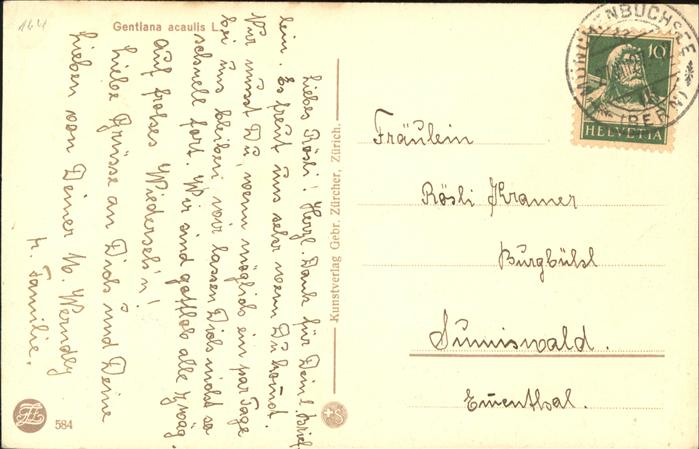 164
Gentiana acaulis L.
Liebes Rösli! Herzl. Dank für Deinl Brief-
lein. Es freut uns sehr wenn Du kommst.
Nur musst Du, wenn möglich ein par Tage
bei uns bleiben, wir lassen Dich nicht so
schnell fort. Wir sind gottlob alle zwäg.
Auf frohes Wiederseh'n!
Liebe Grüsse an Dich und Deine
Lieben von Deiner M. Werndly
u. Familie.
Kunstverlag Gebr. Zürcher, Zürich.
584
MÜNCHENBUCHSEE
(BERN)
10
HELVETIA
Fräulein
Rösli Kramer
Burgbühl
Sumiswald.
Emmenthal.